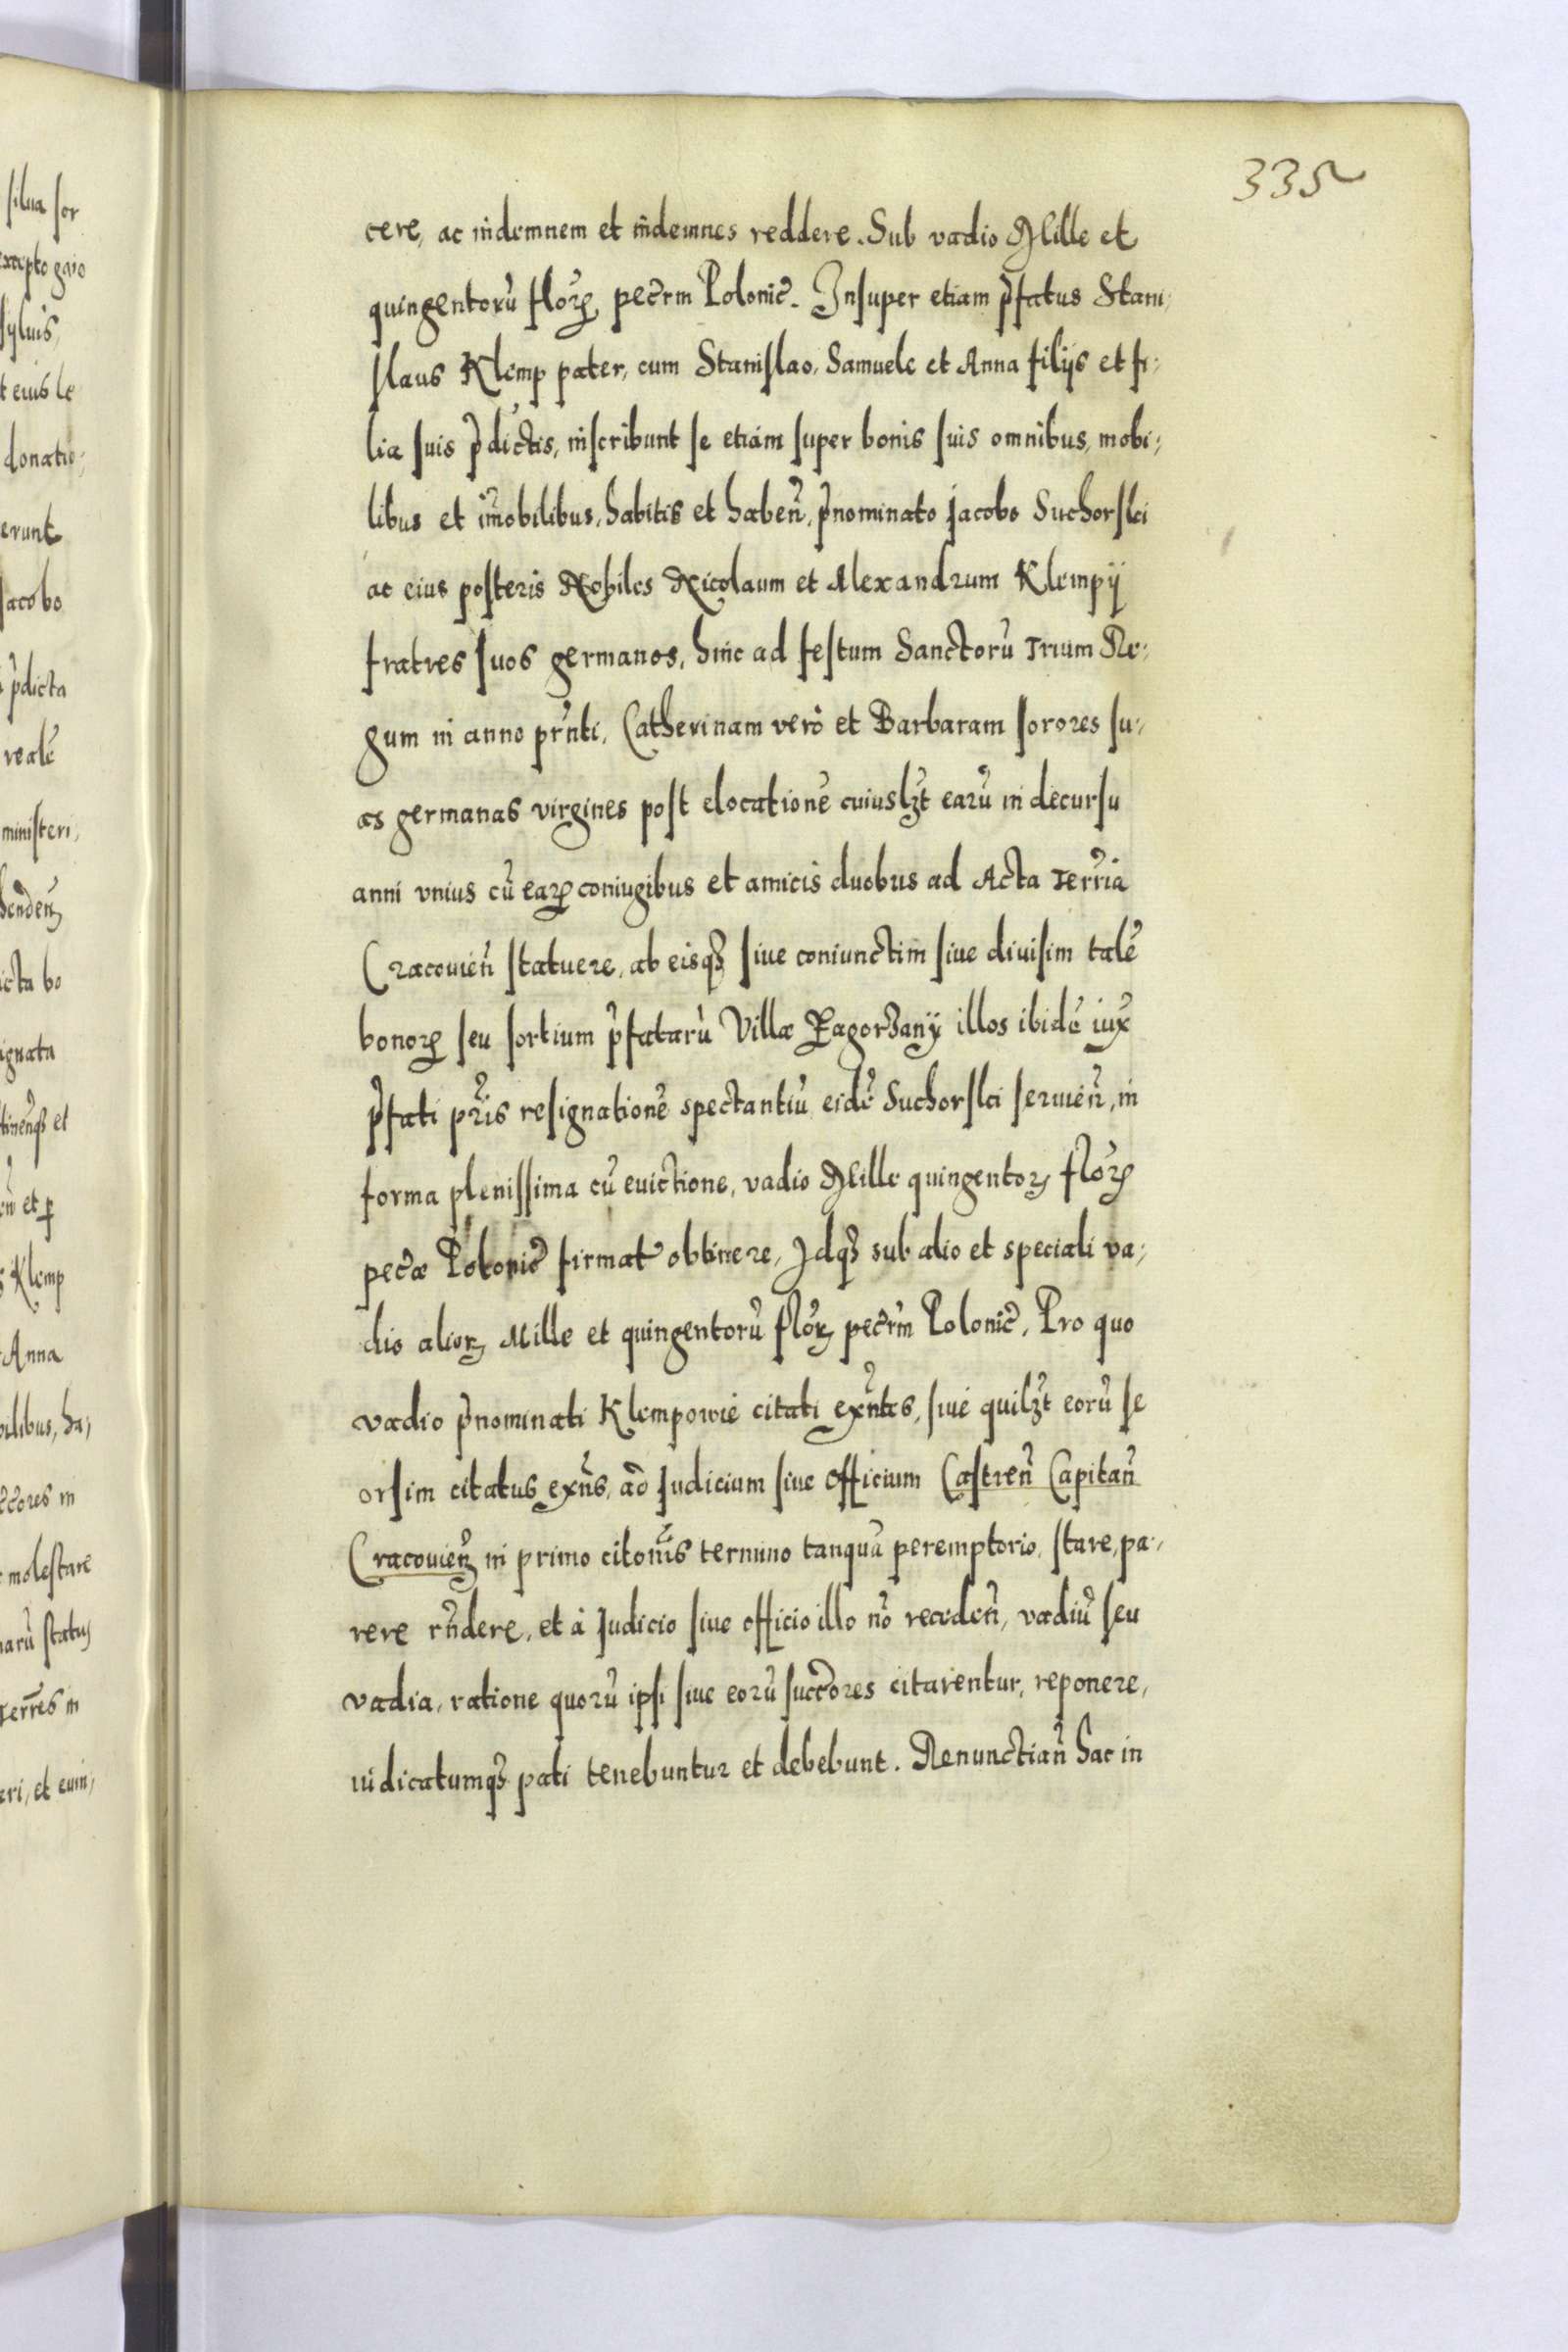 335
cere, ac indemnem et indemnes reddere. Sub vadio Mille et
quingentorũ florꝝ pecrm̃ Polonic̃. Insuper etiam p̃fatus Stani:
slaus Klemp pater, cum Stanislao, Samuele et Anna filijs et fi:
lia suis p̃dictis, inscribunt se etiam super bonis suis omnibus, mobi:
libus et im̃obilibus, habitis et habeñ, p̃nominato Jacobo Suchorski
ac eius posteris Nobiles Nicolaum et Alexandrum Klempÿ
fratres suos germanos, hinc ad festum Sanctorũ Trium Re:
gum in anno prñti, Catherinam verò et Barbaram sorores su:
as germanas virgines post elocationẽ cuiuslꝫt earũ in decursu
anni vnius cũ earꝝ coniugibus et amicis duobus ad Acta Terrĩa
Cracouieñ statuere, ab eisqꝫ siue coniunctim siue diuisim talẽ
bonorꝝ seu sortium p̃fatarũ Villæ Zagorzanÿ illos ibidẽ iux̃
p̃fati pr̃is resignationẽ spectantiũ eidẽ Suchorski seruieñ, in
forma plenissima cũ euictione, vadio Mille quingentorꝝ florꝝ
pec̃æ Polonic̃ firmat̃ obtinere, Idqꝫ sub alio et speciali va:
dio aliorꝝ Mille et quingentorũ florꝝ pecrm̃ Polonic̃. Pro quo
vadio p̃nominati Klempowie citati exñtes, siue quilꝫt eorũ se
orsim citatus exñs, ad Judicium siue officium Castreñ Capitañ
Cracouieñ in primo citonĩs termino tanquã peremptorio, stare, pa:
rere rñdere, et à Judicio siue officio illo nõ recedeñ, vadiũ seu
vadia, ratione quorũ ipsi siue eorũ succ̃ores citarentur, reponere,
iudicatumqꝫ pati tenebuntur et debebunt. Renunctiañ hac in